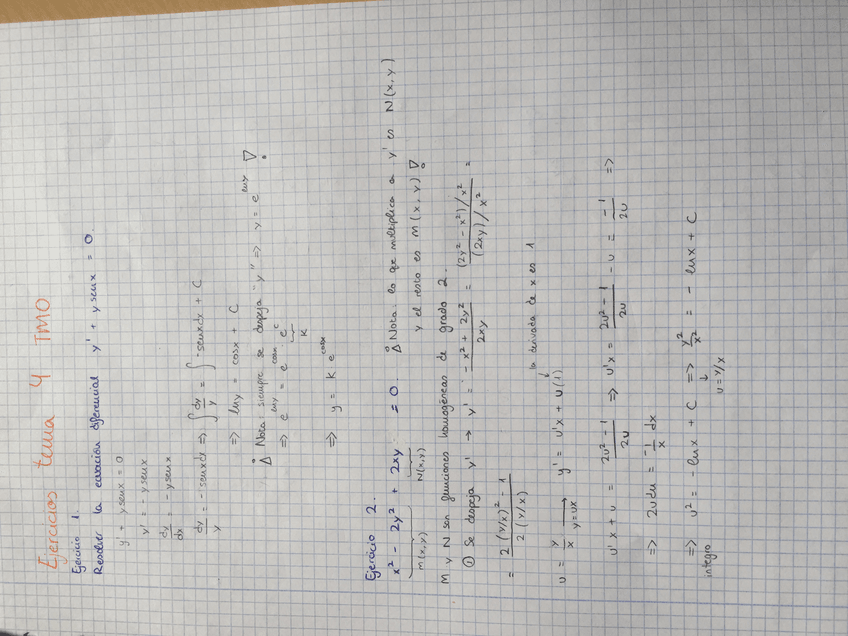 Ejercicios tema 4 TMO
Ejercicio 1.
Resolver la ecuación diferencial y' + y senx = 0.
y' + y senx = 0
y' = - y senx
dy/dx = - y senx
dy/y = - senxdx => ∫ dy/y = ∫ - senxdx + C
=> lny = cosx + C
Nota: siempre se despeja "y" => y = e^lny
=> e^lny = e^cosx · e^c
K
=> y = K e^cosx
Ejercicio 2.
x² - 2y² + 2xy = 0. Nota: lo que multiplica a y' es N(x,y)
M(x,y) N(x,y) y el resto es M(x,y)
M y N son funciones homogéneas de grado 2.
① Se despeja y' → y' = - x² + 2y² / 2xy = (2y² - x²)/x² / (2xy)/x² =
= 2(y/x)² - 1 / 2(y/x)
la derivada de x es 1
u = y/x → y=ux y' = u'x + u(1)
u'x + u = 2u² - 1 / 2u => u'x = 2u² - 1 / 2u - u = -1/2u =>
=> 2udu = -1/x dx
=> u² = - lnx + C => y²/x² = - lnx + C
integro u = y/x